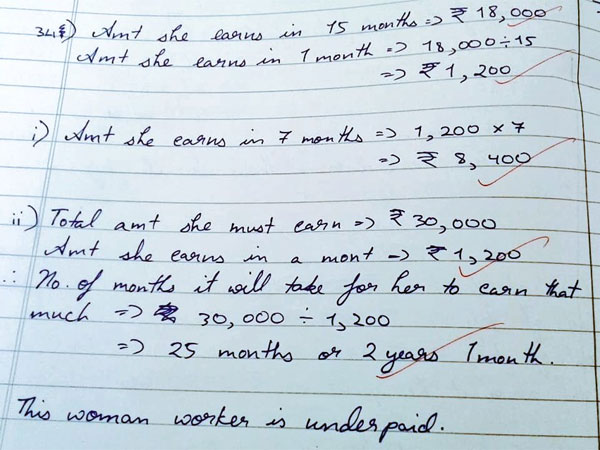 34) Amt she earns in 15 months => ₹ 18,000
Amt she earns in 1 month => 18,000 ÷ 15
=> ₹ 1,200
i) Amt she earns in 7 months => 1,200 x 7
=> ₹ 8,400
ii) Total amt she must earn => ₹ 30,000
Amt she earns in a mont => ₹ 1,200
∴ No. of months it will take for her to earn that
much => 30,000 ÷ 1,200
=> 25 months or 2 years 1 month.
This woman worker is underpaid.